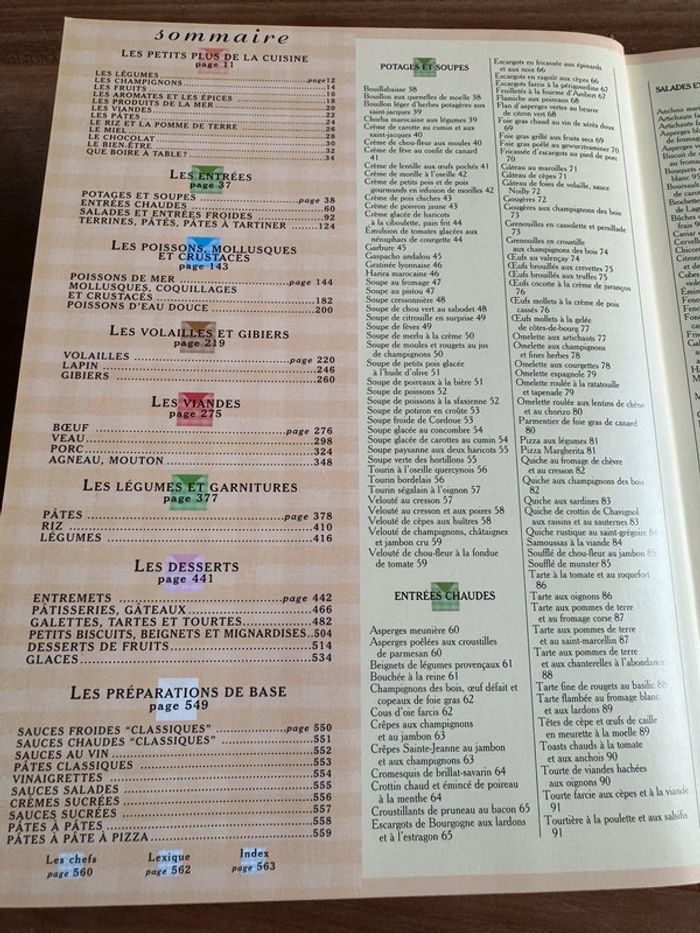 sommaire
LES PETITS PLUS DE LA CUISINE
page 11
LES LÉGUMES page 12
LES CHAMPIGNONS 14
LES FRUITS 16
LES AROMATES ET LES ÉPICES 18
LES PRODUITS DE LA MER 20
LES VIANDES 22
LES PÂTES 24
LE RIZ ET LA POMME DE TERRE 26
LE MIEL 28
LE CHOCOLAT 30
LE BIEN-ÊTRE 32
QUE BOIRE À TABLE? 34
LES ENTRÉES
page 37
POTAGES ET SOUPES page 38
ENTRÉES CHAUDES 60
SALADES ET ENTRÉES FROIDES 92
TERRINES, PÂTÉS, PÂTES À TARTINER 124
LES POISSONS, MOLLUSQUES
ET CRUSTACÉS
page 143
POISSONS DE MER page 144
MOLLUSQUES, COQUILLAGES
ET CRUSTACÉS 182
POISSONS D'EAU DOUCE 200
LES VOLAILLES ET GIBIERS
page 219
VOLAILLES page 220
LAPIN 246
GIBIERS 260
LES VIANDES
page 275
BŒUF page 276
VEAU 298
PORC 324
AGNEAU, MOUTON 348
LES LÉGUMES ET GARNITURES
page 377
PÂTES page 378
RIZ 410
LÉGUMES 416
LES DESSERTS
page 441
ENTREMETS page 442
PÂTISSERIES, GÂTEAUX 466
GALETTES, TARTES ET TOURTES 482
PETITS BISCUITS, BEIGNETS ET MIGNARDISES 504
DESSERTS DE FRUITS 514
GLACES 534
LES PRÉPARATIONS DE BASE
page 549
SAUCES FROIDES "CLASSIQUES" page 550
SAUCES CHAUDES "CLASSIQUES" 551
SAUCES AU VIN 552
PÂTES CLASSIQUES 553
VINAIGRETTES 554
SAUCES SALADES 555
CRÈMES SUCRÉES 556
SAUCES SUCRÉES 557
PÂTES À PÂTES 558
PÂTES À PÂTE À PIZZA 559
Les chefs
page 560
Lexique
page 562
Index
page 563
POTAGES ET SOUPES
Bouillabaisse 38
Bouillon aux quenelles de moelle 38
Bouillon léger d'herbes potagères aux
saint-jacques 39
Chorba marocaine aux légumes 39
Crème de carotte au cumin et aux
saint-jacques 40
Crème de chou-fleur aux moules 40
Crème de fève au confit de canard
41
Crème de lentille aux œufs pochés 41
Crème de morille à l'oseille 42
Crème de petits pois et de pois
gourmands en infusion de morilles 42
Crème de pois chiches 43
Crème de poivron jaune 43
Crème glacée de haricots
à la ciboulette, pain frit 44
Émulsion de tomates glacées aux
nénuphars de courgette 44
Garbure 45
Gaspacho andalou 45
Gratinée lyonnaise 46
Harira marocaine 46
Soupe au fromage 47
Soupe au pistou 47
Soupe cressonnière 48
Soupe de chou vert au sabodet 48
Soupe de citrouille en surprise 49
Soupe de fèves 49
Soupe de merlu à la crème 50
Soupe de moules et rougets au jus
de champignons 50
Soupe de petits pois glacée
à l'huile d'olive 51
Soupe de poireaux à la bière 51
Soupe de poissons 52
Soupe de poissons à la sfaxienne 52
Soupe de potiron en croûte 53
Soupe froide de Cordoue 53
Soupe glacée au concombre 54
Soupe glacée de carottes au cumin 54
Soupe paysanne aux deux haricots 55
Soupe verte des hortillons 55
Tourin à l'oseille quercynois 56
Tourin bordelais 56
Tourin ségalain à l'oignon 57
Velouté au cresson 57
Velouté au cresson et aux poires 58
Velouté de cèpes aux huîtres 58
Velouté de champignons, châtaignes
et jambon cru 59
Velouté de chou-fleur à la fondue
de tomate 59
ENTRÉES CHAUDES
Asperges meunière 60
Asperges poêlées aux croustilles
de parmesan 60
Beignets de légumes provençaux 61
Bouchée à la reine 61
Champignons des bois, œuf défait et
copeaux de foie gras 62
Cous d'oie farcis 62
Crêpes aux champignons
et au jambon 63
Crêpes Sainte-Jeanne au jambon
et aux champignons 63
Cromesquis de brillat-savarin 64
Crottin chaud et émincé de poireau
à la menthe 64
Croustillants de pruneau au bacon 65
Escargots de Bourgogne aux lardons
et à l'estragon 65
Escargots en fricassée aux épinards
et aux noix 66
Escargots en ragoût aux cèpes 66
Escargots farcis à la périgourdine 67
Feuilletés à la fourme d'Ambert 67
Flamiche aux poireaux 68
Flan d'asperges vertes au beurre
de citron vert 68
Foie gras chaud au vin de xérès doux
69
Foie gras grillé aux fruits secs 69
Foie gras poêlé au gewurztraminer 70
Fricassée d'escargots au pied de porc
70
Gâteau au maroilles 71
Gâteau de cèpes 71
Gâteau de foies de volaille, sauce
Noilly 72
Gougères 72
Gougères aux champignons des bois
73
Grenouilles en cassolette et persillade
73
Grenouilles en croustille
aux champignons des bois 74
Œufs au valençay 74
Œufs brouillés aux crevettes 75
Œufs brouillés aux truffes 75
Œufs cocotte à la crème de jurançon
76
Œufs mollets à la crème de pois
cassés 76
Œufs mollets à la gelée
de côtes-de-bourg 77
Omelette aux artichauts 77
Omelette aux champignons
et fines herbes 78
Omelette aux courgettes 78
Omelette espagnole 79
Omelette roulée à la ratatouille
et tapenade 79
Omelette roulée aux lentins de chêne
et au chorizo 80
Parmentier de foie gras de canard
80
Pizza aux légumes 81
Pizza Margherita 81
Quiche au fromage de chèvre
et au cresson 82
Quiche aux champignons des bois
82
Quiche aux sardines 83
Quiche de crottin de Chavignol
aux raisins et au sauternes 83
Quiche rustique au saint-grégoire 84
Samoussas à la viande 84
Soufflé de chou-fleur au jambon 85
Soufflé de munster 85
Tarte à la tomate et au roquefort
86
Tarte aux oignons 86
Tarte aux pommes de terre
et au fromage corse 87
Tarte aux pommes de terre
et au saint-marcellin 87
Tarte aux pommes de terre
et aux chanterelles à l'abondance
88
Tarte fine de rougets au basilic 88
Tarte flambée au fromage blanc
et aux lardons 89
Têtes de cèpe et œufs de caille
en meurette à la moelle 89
Toasts chauds à la tomate
et aux anchois 90
Tourte de viandes hachées
aux oignons 90
Tourte farcie aux cèpes et à la viande
91
Tourtière à la poulette et aux salsifis
91
SALADES